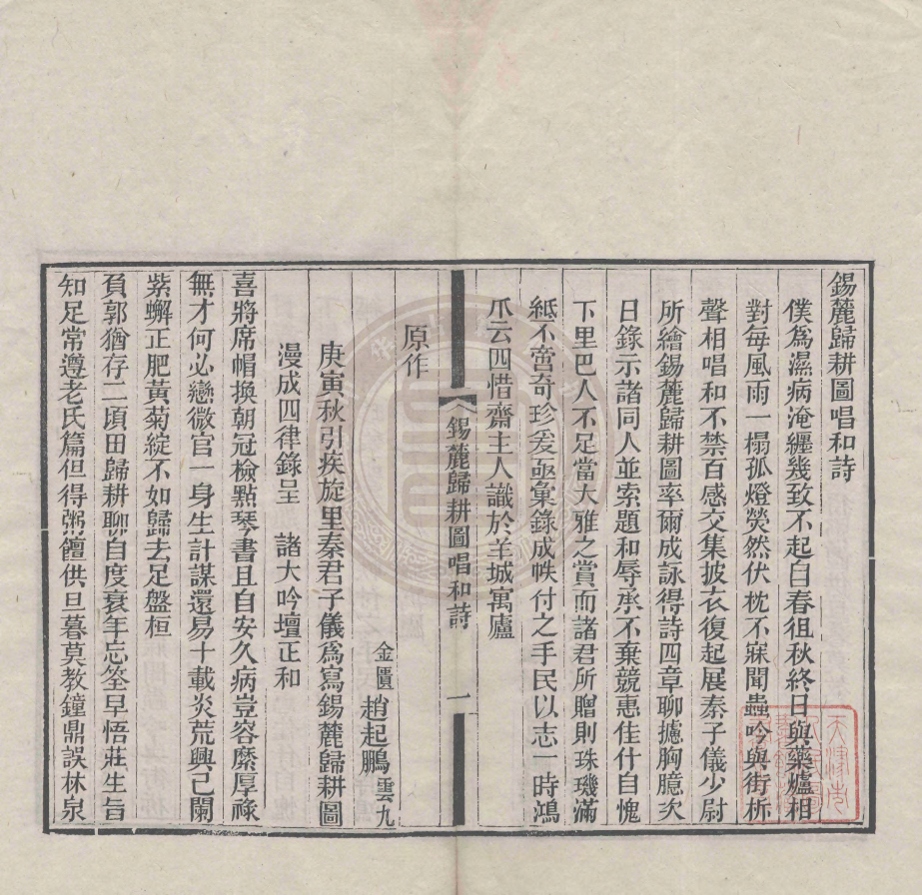 錫麓歸耕圖唱和詩
僕爲濕病淹纒幾致不起自春徂秋終日與藥爐相
對每風雨一榻孤燈熒然伏枕不寐聞蟲吟與街柝
聲相唱和不禁百感交集披衣復起展秦子儀少尉
所繪錫麓歸耕圖率爾成詠得詩四章聊攄胸臆次
日錄示諸同人並索題和辱承不棄競惠佳什自愧
下里巴人不足當大雅之賞而諸君所贈則珠璣滿
紙不啻奇珍爰亟彙錄成帙付之手民以志一時鴻
爪云四惜齋主人識於羊城寓廬
錫麓歸耕圖唱和詩 一
原作
金匱 趙起鵬 雲九
庚寅秋引疾旋里秦君子儀爲寫錫麓歸耕圖
漫成四律錄呈 諸大吟壇正和
喜將席帽換朝冠檢點琴書且自安久病豈容縻厚祿
無才何必戀微官一身生計謀還易十載炎荒興已闌
紫蠏正肥黃菊綻不如歸去足盤桓
負郭猶存二頃田歸耕聊自度衰年忘筌早悟莊生旨
知足常遵老氏篇但得粥饘供旦暮莫教鐘鼎誤林泉